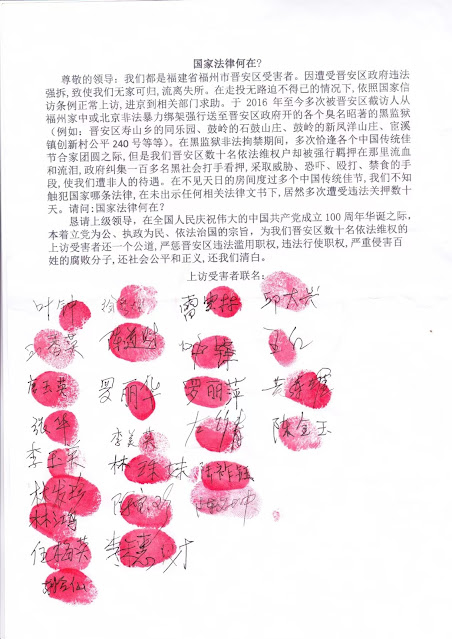 国家法律何在?
尊敬的领导: 我们都是福建省福州市晋安区受害者。因遭受晋安区政府违法
强拆,致使我们无家可归,流离失所。在走投无路迫不得已的情况下,依照国家信
访条例正常上访,进京到相关部门求助。于 2016 年至今多次被晋安区截访人从
福州家中或北京非法暴力绑架强行送至晋安区政府开的各个臭名昭著的黑监狱
(例如: 晋安区寿山乡的同乐园、鼓岭的石鼓山庄、鼓岭的新风洋山庄、宦溪
镇创新村公平 240 号等等)。在黑监狱非法拘禁期间,多次恰逢各个中国传统佳
节合家团圆之际,但是我们晋安区数十名依法维权户却被强行羁押在那里流血
和流泪,政府纠集一百多名黑社会打手看押,采取威胁、恐吓、殴打、禁食的手
段,使我们遭非人的待遇。在不见天日的房间度过多个中国传统佳节,我们不知
触犯国家哪条法律,在未出示任何相关法律文书下,居然多次遭受违法关押数十
天。请问:国家法律何在?
恳请上级领导,在全国人民庆祝伟大的中国共产党成立 100 周年华诞之际,
本着立党为公、执政为民、依法治国的宗旨,为我们晋安区数十名依法维权的
上访受害者还一个公道,严惩晋安区违法滥用职权,违法行使职权,严重侵害百
姓的腐败分子,还社会公平和正义,还我们清白。
上访受害者联名:
叶钟
唐玉英 罗丽华 罗丽萍
张华 李美英 陈金玉
林 珠妹
林发珍
任梅英